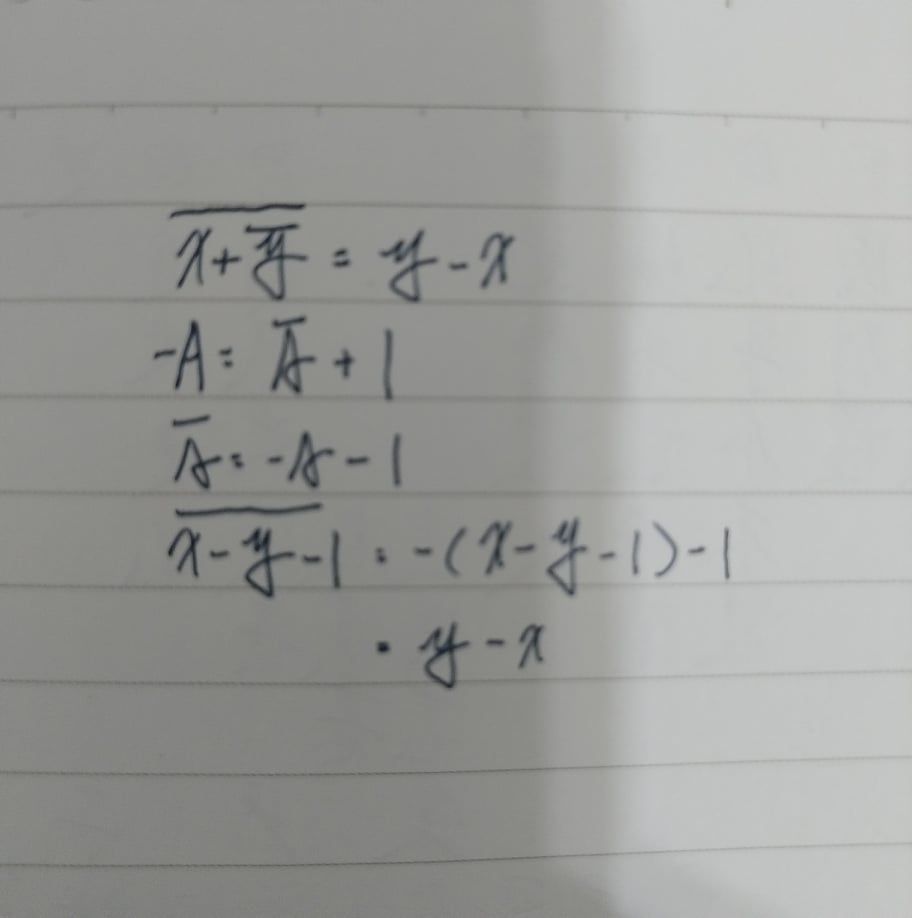 $\overline{x+\overline{y}} = y-x$
$-A = \overline{A}+1$
$\overline{A} = -A-1$
$\overline{x-y-1} = -(x-y-1)-1$
$= y-x$